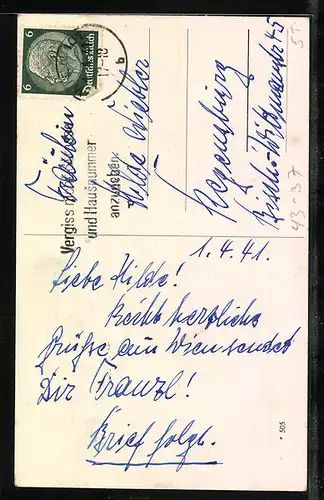 6 6
Deutsches Reich
17-18
b
Vergiss nicht
und Hausnummer
anzugeben
Fräulein
Hilde
Regensburg
45
5T
43-37
1.4.41.
Liebe Hilde!
Recht herzliche
Grüße aus Wien sendet
Dir Franzl!
Brief folgt.
* 505